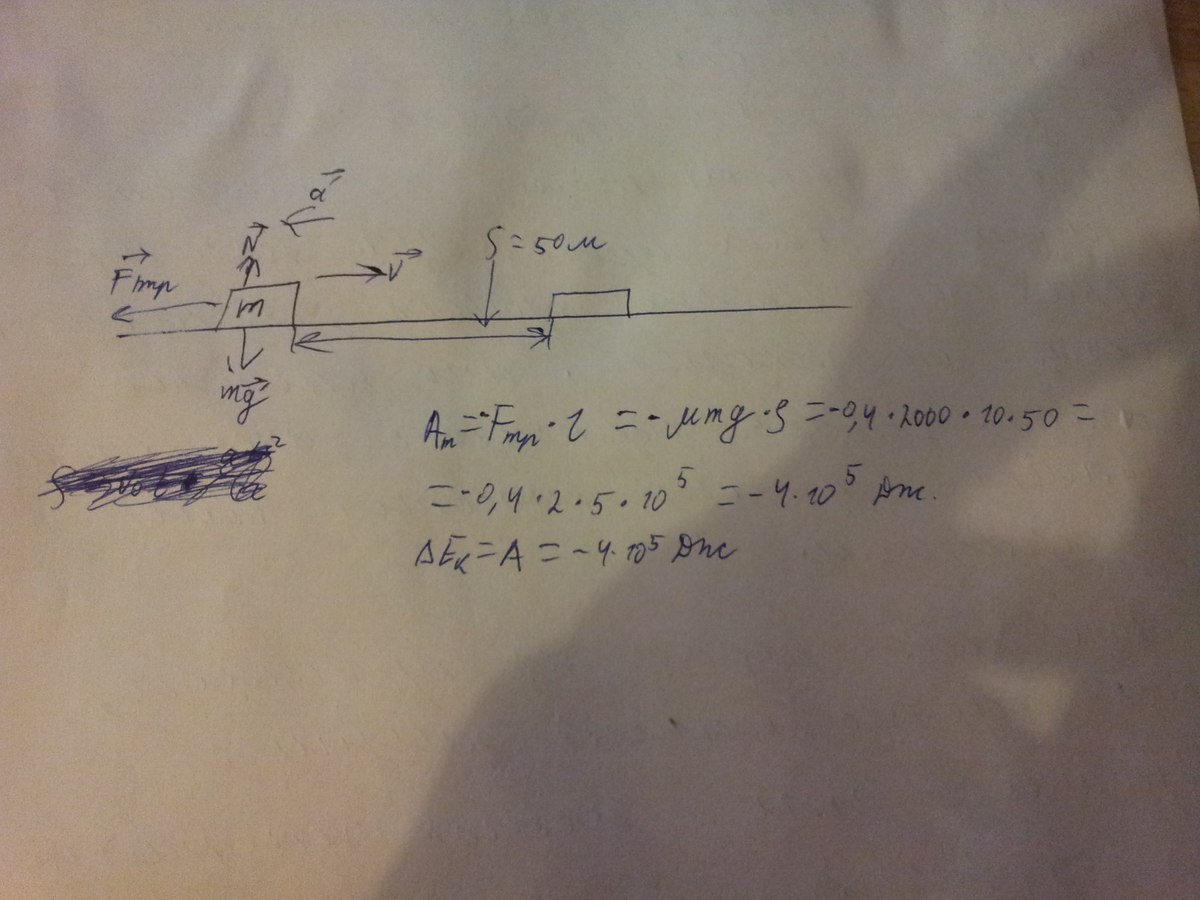 a
N
Fтр
V
S = 50м
m
mg
Aт = -Fтр · l = -μmg · S = -0,4 · 2000 · 10 · 50 =
= -0,4 · 2 · 5 · 10⁵ = -4 · 10⁵ Дж.
ΔEк = A = -4 · 10⁵ Дж